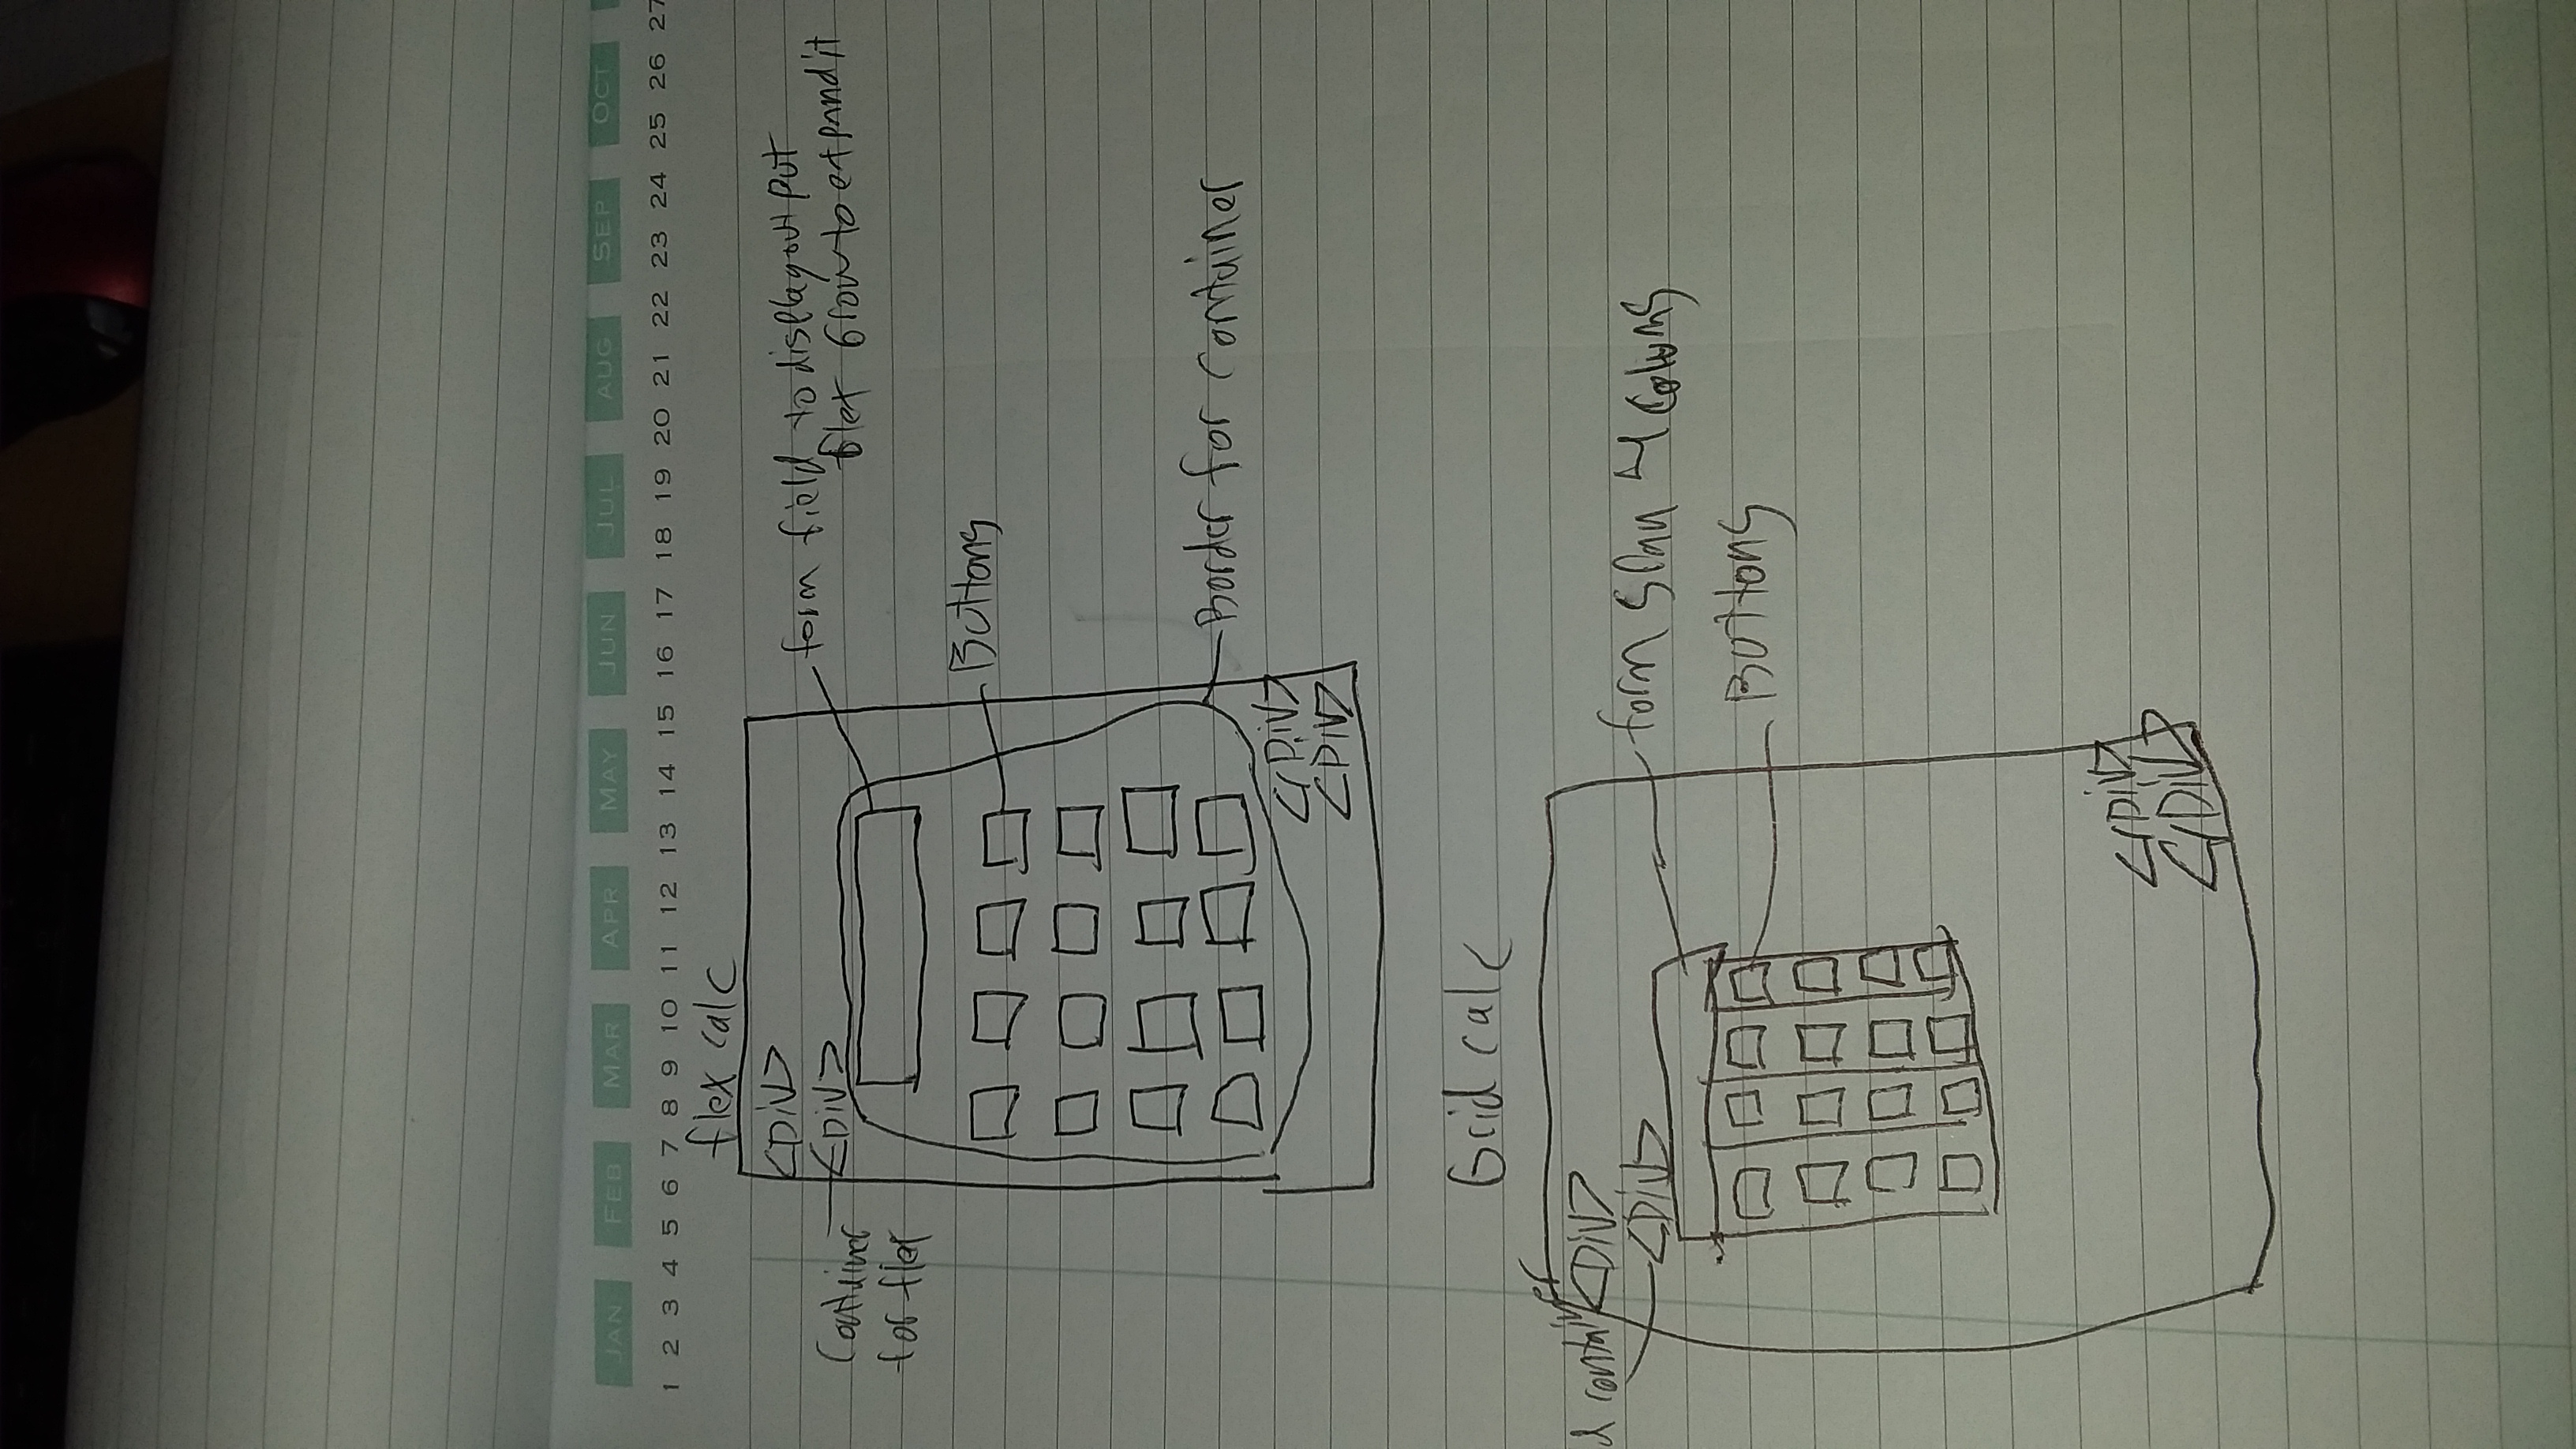 JAN FEB MAR APR MAY JUN JUL AUG SEP OCT
1 2 3 4 5 6 7 8 9 10 11 12 13 14 15 16 17 18 19 20 21 22 23 24 25 26 27
flex calc
<DiV>
<DiV>
Container
for flex
form field to display out put
flex Grow to expand it
Buttons
Border for Container
</DiV>
<DiV>
Grid calc
container
<DiV>
<DiV>
form span 4 Colums
Buttons
</DiV>
</DiV>